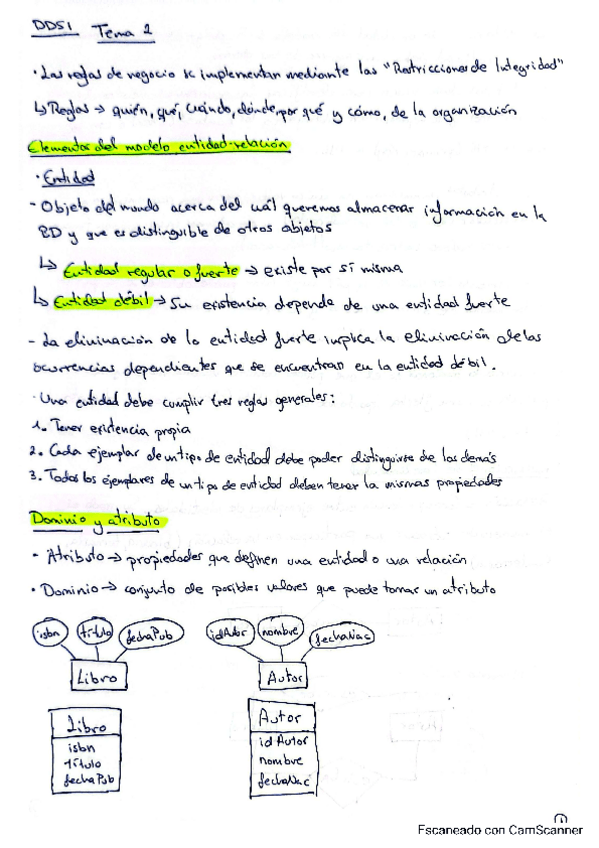 DDSI Tema 2
· Las reglas de negocio se implementan mediante las "Restricciones de Integridad"
↳ Reglas → quién, qué, cuándo, dónde, por qué y cómo, de la organización
Elementos del modelo entidad-relación
· Entidad
- Objeto del mundo acerca del cuál queremos almacenar información en la
BD y que es distinguible de otros objetos
↳ Entidad regular o fuerte → existe por sí misma
↳ Entidad débil → Su existencia depende de una entidad fuerte
- La eliminación de la entidad fuerte implica la eliminación de las
ocurrencias dependientes que se encuentran en la entidad débil.
· Una entidad debe cumplir tres reglas generales:
1. Tener existencia propia
2. Cada ejemplar de un tipo de entidad debe poder distinguirse de los demás
3. Todos los ejemplares de un tipo de entidad deben tener la mismas propiedades
Dominio y atributo
· Atributo → propiedades que definen una entidad o una relación
· Dominio → conjunto de posibles valores que puede tomar un atributo
isbn título fechaPub idAutor nombre fechaNac
Libro Autor
Libro Autor
isbn idAutor
título nombre
fechaPub fechaNac
1
Escaneado con CamScanner